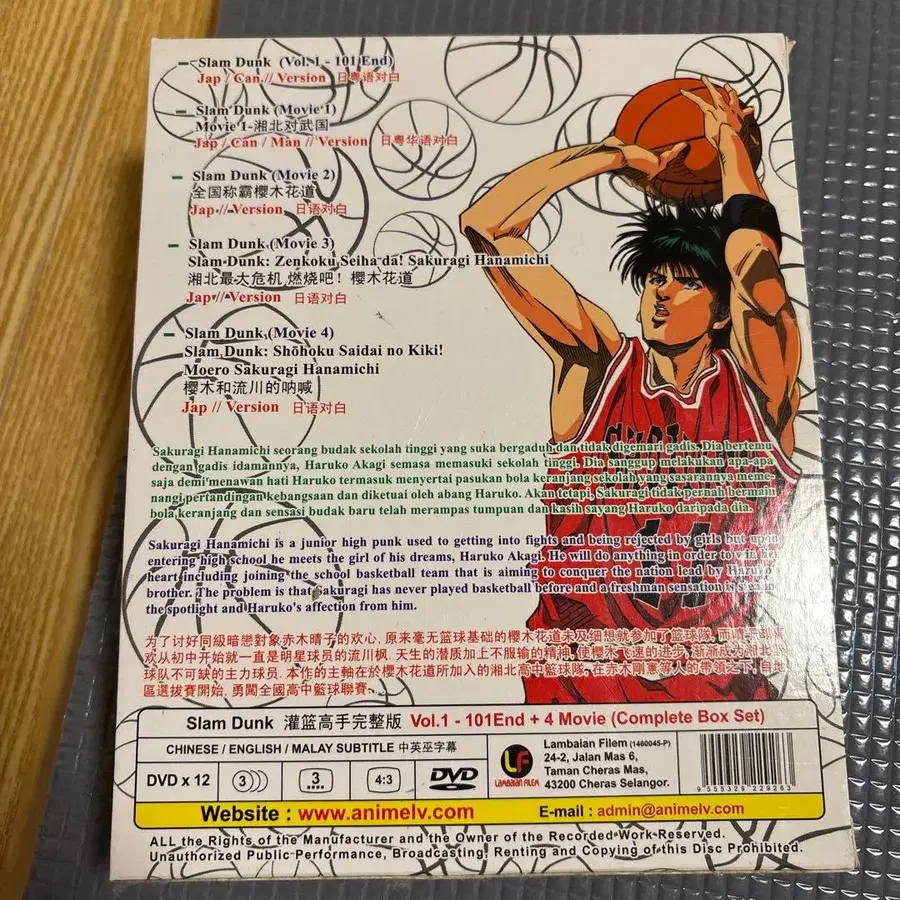 Slam Dunk (Vol. 1 - 101 End)
Jap / Can // Version 日粤语对白
Slam Dunk (Movie 1)
Movie 1-湘北对武国
Jap / Can / Man // Version 日粤华语对白
Slam Dunk (Movie 2)
全国称霸樱木花道
Jap // Version 日语对白
Slam Dunk (Movie 3)
Slam Dunk: Zenkoku Seiha da! Sakuragi Hanamichi
湘北最大危机 燃烧吧! 樱木花道
Jap // Version 日语对白
Slam Dunk (Movie 4)
Slam Dunk: Shōhoku Saidai no Kiki!
Moero Sakuragi Hanamichi
樱木和流川的呐喊
Jap // Version 日语对白
Sakuragi Hanamichi seorang budak sekolah tinggi yang suka bergaduh dan tidak digemari gadis. Dia bertemu
dengan gadis idamannya, Haruko Akagi semasa memasuki sekolah tinggi. Dia sanggup melakukan apa-apa
saja demi menawan hati Haruko termasuk menyertai pasukan bola keranjang sekolah yang sasarannya meme-
nangi pertandingan kebangsaan dan diketuai oleh abang Haruko. Akan tetapi, Sakuragi tidak pernah bermain
bola keranjang dan sensasi budak baru telah merampas tumpuan dan kasih sayang Haruko daripada dia.
Sakuragi Hanamichi is a junior high punk used to getting into fights and being rejected by girls but upon
entering high school he meets the girl of his dreams, Haruko Akagi. He will do anything in order to win her
heart including joining the school basketball team that is aiming to conquer the nation lead by Haruko's
brother. The problem is that Sakuragi has never played basketball before and a freshman sensation is
the spotlight and Haruko's affection from him.
为了讨好同級暗戀對象赤木晴子的欢心, 原来毫无篮球基础的樱木花道未及细想就参加了篮球隊, 而晴子
欢从初中开始就一直是明星球员的流川枫. 天生的潜质加上不服输的精神, 使樱木飞速的进步, 渐渐成为湘北
球队不可缺的主力球员. 本作的主軸在於樱木花道所加入的湘北高中籃球隊, 在赤木剛憲等人的帶領之下, 自地
區選拔賽開始, 勇闖全國高中籃球聯賽.
Slam Dunk 灌篮高手完整版 Vol.1 - 101End + 4 Movie (Complete Box Set)
CHINESE / ENGLISH / MALAY SUBTITLE 中英巫字幕
DVD x 12 3 3 4:3 DVD
LF
LAMBAIAN FILEM
Lambaian Filem (1460045-P)
24-2, Jalan Mas 6,
Taman Cheras Mas,
43200 Cheras Selangor.
9 555329 229263
Website : www.animelv.com E-mail : admin@animelv.com
ALL the Rights of the Manufacturer and the Owner of the Recorded Work Reserved.
Unauthorized Public Performance, Broadcasting, Renting and Copying of this Disc Prohibited.